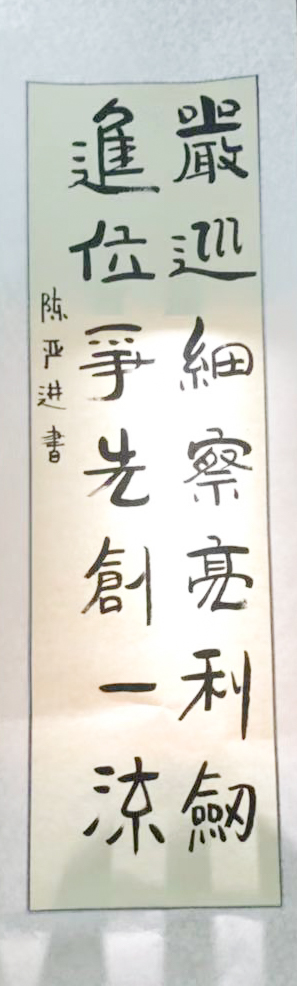 嚴巡細察亮利劒
進位爭先創一流
陈亚进書